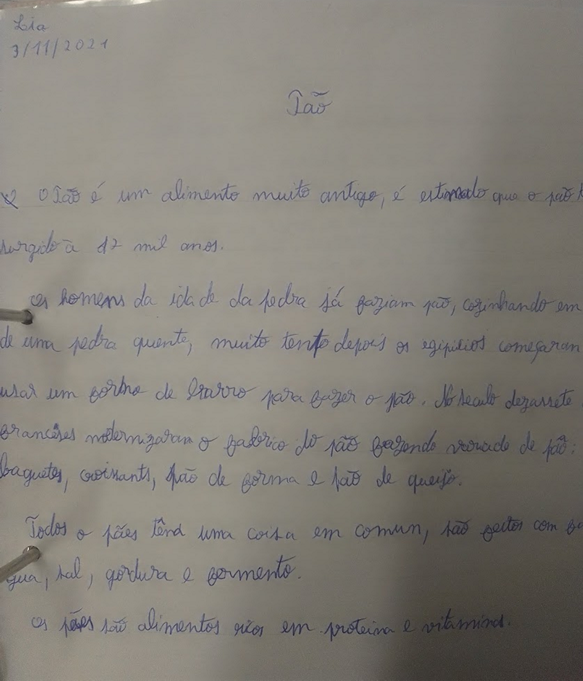 Lia
3/11/2021
Pão
O Pão é um alimento muito antigo, é estimado que o pão
surgido à 12 mil anos.
os homens da idade da pedra já faziam pão, cozinhando em
de uma pedra quente, muito tempo depois os egípicios começaram
usar um forno de barro para fazer o pão. No seculo dezassete
franceses modernizaram o fabrico do pão fazendo variade de pão:
baguetes, croissants, pão de forma e pão de queijo.
Todos o pães tênd uma coisa em comun, são feitos com
gua, sal, gordura e formento.
os pães são alimentos ricos em proteina e vitaminas.